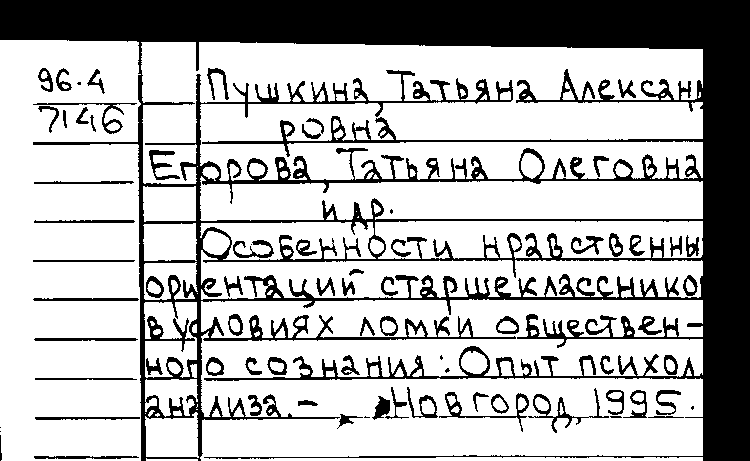 96.4 Пушкина, Татьяна Александ
7146 ровна
Егорова, Татьяна Олеговна
и др.
Особенности нравственны
ориентаций старшеклассников
в условиях ломки обществен-
ного сознания: Опыт психол.
анализа. - Новгород, 1995.